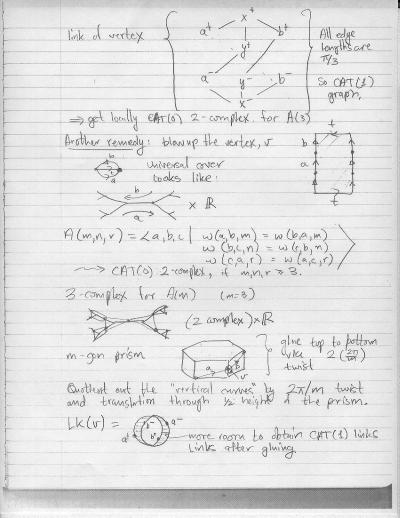 link of vertex
x+
a+ b+
y+
a- y- b-
x-
All edge
lengths are
π/3
So CAT(1)
graph.
⇒ get locally CAT(0) 2-complex for A(3)
Another remedy: blow up the vertex, v
b
a
universal cover
looks like:
b
a
× ℝ
t
b
a
t
A(m,n,r) = <a,b,c | w(a,b,m) = w(b,a,m)
w(b,c,n) = w(c,b,n)
w(c,a,r) = w(a,c,r) >
⇝ CAT(0) 2-complex, if m,n,r ≥ 3.
3-complex for A(m) (m=3)
(2 complex) × ℝ
m-gon prism
a
b
v
glue top to bottom
via 2(2π/2m)
twist
Quotient out the "vertical curves" by 2π/m twist
and translation through ½ height of the prism.
Lk(v) =
a+ b- b+ a-
more room to obtain CAT(1) links
links after gluing.